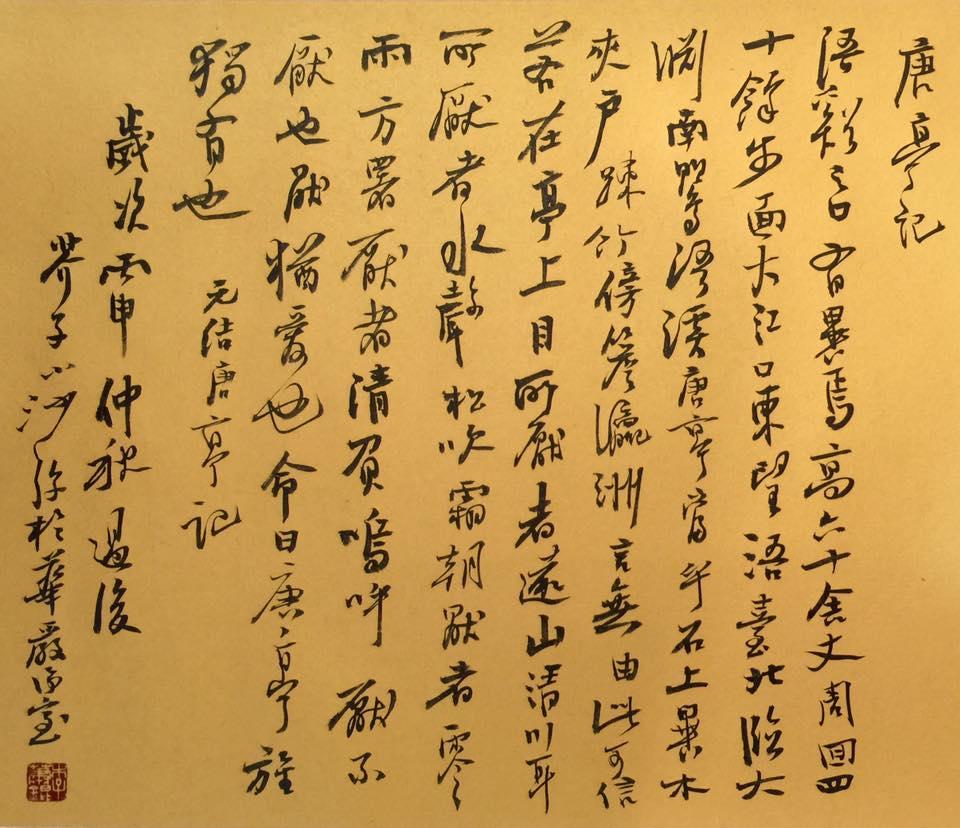 唐亭記
浯谿之口有異焉高六十余丈周回四
十餘步面大江口東望浯臺北臨大
淵南浯溪唐亭當乎石上異木
夾戶疎竹傍簷瀛洲言無由此可信
若在亭上目所厭者遠山清川耳
所厭者水聲松吹霜朝厭者零
雨方署厭者清嗚呼厭不
厭也厭猶愛也命曰唐亭旌
獨有也
元結唐亭記
歲次丙申仲秋過後
芥子小沙弥於華嚴室